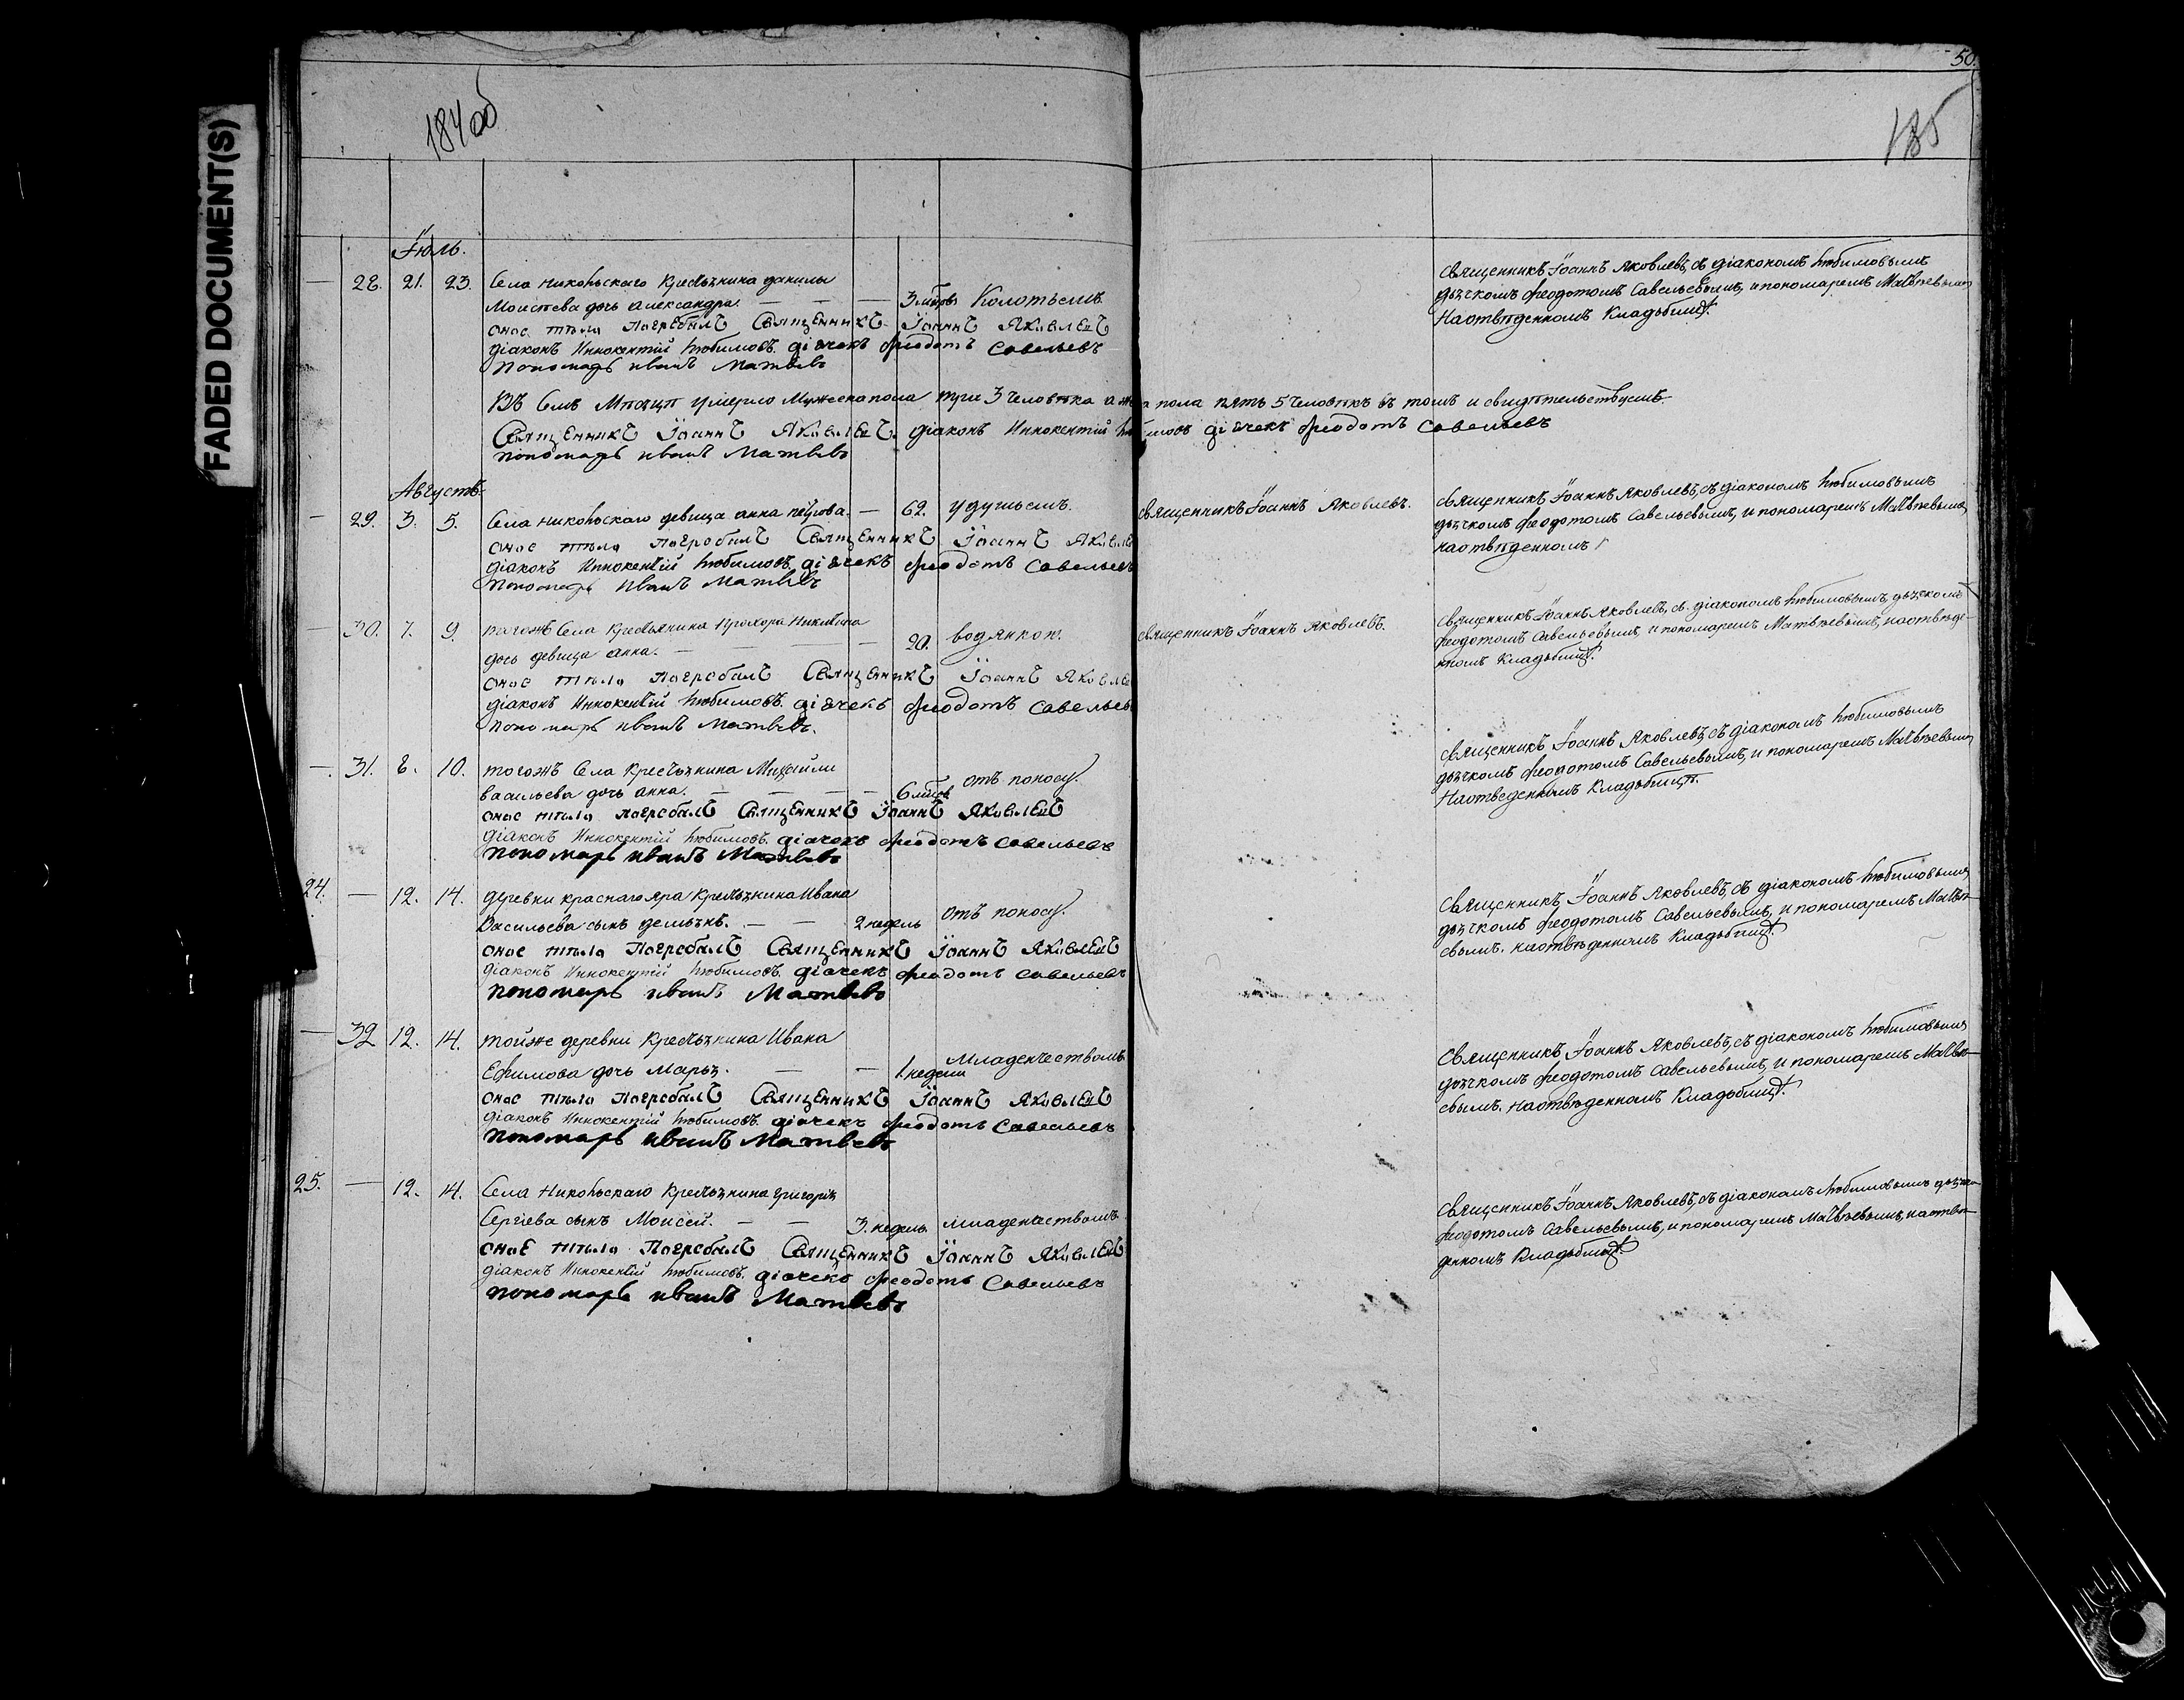 FADED DOCUMENT(S)
184 об
50.
185
Іюль.
— 28. 21. 23. Села Никольскаго Крестьянина данилы
Моисеева дочь александра. — — — 3 мѣсяцовъ Колотьемъ.
оное тѣло погребалъ Священникъ Іоаннъ Яковлевъ
діаконъ Иннокентій Любимовъ. діачекъ феодотъ Савельевъ
пономарь иванъ Матвѣевъ
Священникъ Іоаннъ Яковлевъ, съ діакономъ Любимовымъ
дьячкомъ феодотомъ Савельевымъ, и пономаремъ Матвѣевымъ
Наотвѣденномъ Кладбищѣ.
Въ Семъ Мѣсяцѣ умерло Мужеска пола три 3 человѣка а же пола пять 5 человѣкъ въ томъ и свидѣтельствуемъ.
Священникъ Іоаннъ Яковлевъ. діаконъ Иннокентій Любимовъ діячекъ феодотъ Савельевъ
пономарь иванъ Матвѣевъ
Августъ.
— 29. 3. 5. Села Никольскаго девица анна петрова. — 62. удушьемъ. священникъ Іоаннъ Яковлевъ.
оное тѣло погребалъ Священникъ Іоаннъ Яковле
діаконъ Иннокентій Любимовъ. діячекъ феодотъ Савельевъ
пономарь Иванъ Матвѣевъ
священникъ, Іоаннъ Яковлевъ, съ діакономъ Любимовымъ
дьячкомъ феодотомъ Савельевымъ, и пономаремъ Матвѣевымъ,
наотвѣденномъ
— 30. 7. 9. тогожъ Села Крестьянина Прохора Никитина
дочь девица анна. — — — — 20. водянкою. священникъ Іоаннъ Яковлевъ.
оное тѣло погребалъ Священникъ Іоаннъ Яковле
діаконъ Иннокентій Любимовъ. діячекъ феодотъ Савельевъ
пономарь иванъ Матвѣевъ.
священникъ Іоаннъ Яковлевъ, съ діакономъ Любимовымъ, дьячкомъ
феодотомъ Савельевымъ, и пономаремъ Матвѣевымъ, наотвѣде-
нномъ Кладбищѣ.
— 31. 8. 10. тогожъ Села Крестьянина Михайлы
васильева дочь анна. — — — — 6 мѣсяцовъ отъ поносу.
оное тѣло погребалъ Священникъ Іоаннъ Яковлевъ
діаконъ Иннокентій Любимовъ. діачокъ феодотъ Савельевъ
пономарь иванъ Матвѣевъ
священникъ Іоаннъ Яковлевъ, съ діакономъ Любимовымъ
дьячкомъ феодотомъ Савельевымъ, и пономаремъ Матвѣевымъ
Наотведенномъ Кладбищѣ.
24. — 12. 14. деревни краснаго яра Крестьянина Ивана
Васильева сынъ демьянъ. — — 2 недель отъ поносу.
оное тѣло погребалъ Священникъ Іоаннъ Яковлевъ
діаконъ Иннокентій Любимовъ. діачекъ феодотъ Савельевъ
пономарь иванъ Матвѣевъ
священникъ, Іоаннъ Яковлевъ, съ діакономъ Любимовымъ,
дьячкомъ феодотомъ Савельевымъ, и пономаремъ Матвѣ-
евымъ. наотвѣденномъ Кладбищѣ.
— 32 12. 14. тойже деревни Крестьянина Ивана
Ефимова дочь Марья. — — 1 недели Младенчествомъ.
оное тѣло погребалъ Священникъ Іоаннъ Яковлевъ
діаконъ Иннокентій Любимовъ. діачекъ феодотъ Савельевъ
пономарь иванъ Матвѣевъ
Священникъ, Іоаннъ Яковлевъ, съ діакономъ Любимовымъ
дьячкомъ феодотомъ Савельевымъ, и пономаремъ Матвѣ-
евымъ. Наотвѣденномъ Кладбищѣ.
25. — 12. 14. Села Никольскаго Крестьянина Григорія
Сергіева сынъ Моисей. — — 3. недель младенчествомъ.
оное тѣло погребалъ Священникъ Іоаннъ Яковлевъ
діаконъ Иннокентій Любимовъ. діачекъ феодотъ Савельевъ
пономарь иванъ Матвѣевъ
священникъ Іоаннъ Яковлевъ, съ діакономъ Любимовымъ дьячко
феодотомъ Савельевымъ, и пономаремъ Матвѣевымъ, наотвѣ-
денномъ Кладбищѣ.